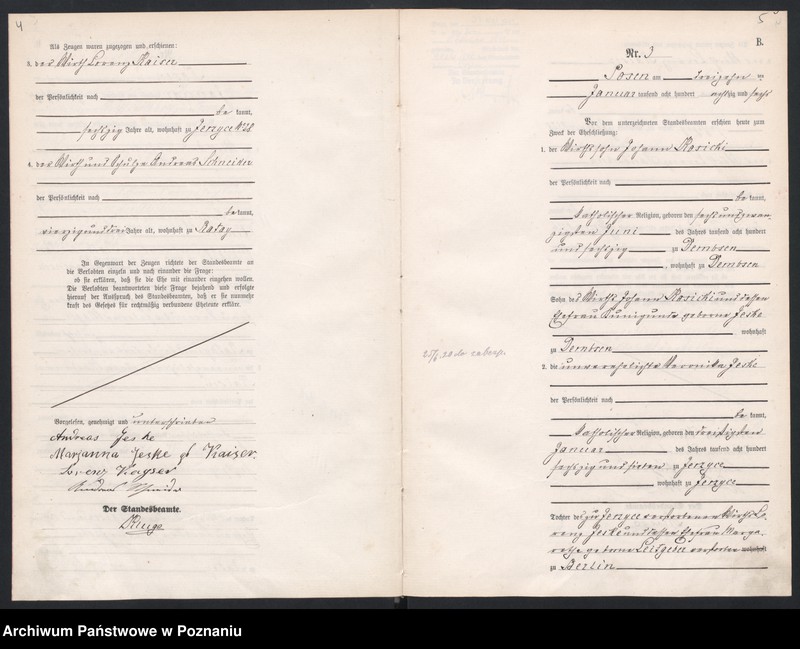 4
Als Zeugen waren zugezogen und erschienen:
3. des Wirth Lorenz Kaiser
der Persönlichkeit nach
be kannt,
sechszig Jahre alt, wohnhaft zu Jerzyce
4. des Wirth und Schulze Andreas Schneider
der Persönlichkeit nach
be kannt,
vierzig und drei Jahre alt, wohnhaft zu Rataj
In Gegenwart der Zeugen richtete der Standesbeamte an
die Verlobten einzeln und nach einander die Frage:
ob sie erklären, daß sie die Ehe mit einander eingehen wollen.
Die Verlobten beantworteten diese Frage bejahend und erfolgte
hierauf der Ausspruch des Standesbeamten, daß er sie nunmehr
kraft des Gesetzes für rechtmäßig verbundene Eheleute erkläre.
Vorgelesen, genehmigt und unterschrieben
Andreas Jeske
Marjanna Jeske gb Kaiser.
Lorenz Kayser
Andreas Schneider
Der Standesbeamte.
5
B.
Nr. 3
Posen am dreizehn ten
Januar tausend acht hundert achtzig und sechs
Vor dem unterzeichneten Standesbeamten erschien heute zum
Zweck der Eheschließung:
1. der Wirthssohn Johann Rosicki
der Persönlichkeit nach
be kannt,
katholischer Religion, geboren den sechs und zwan
zigsten Juni des Jahres tausend acht hundert
und sechszig zu Dembsen
, wohnhaft zu Dembsen
Sohn des Wirths Johann Rosicki und dessen
Ehefrau Kunigunde geborne Jeske
wohnhaft
zu Dembsen
2. die unverehelichte Veronika Jeske
der Persönlichkeit nach
be kannt,
katholischer Religion, geboren den dreißigsten
Januar des Jahres tausend acht hundert
sechszig und sieben zu Jerzyce
, wohnhaft zu Jerzyce
Tochter des zu Jerzyce verstorbenen Wirths Lo
renz Jeske und dessen Ehefrau Marga
rethe geborne Leitgeber verstorben wohnhaft
zu Berlin
Archiwum Państwowe w Poznaniu